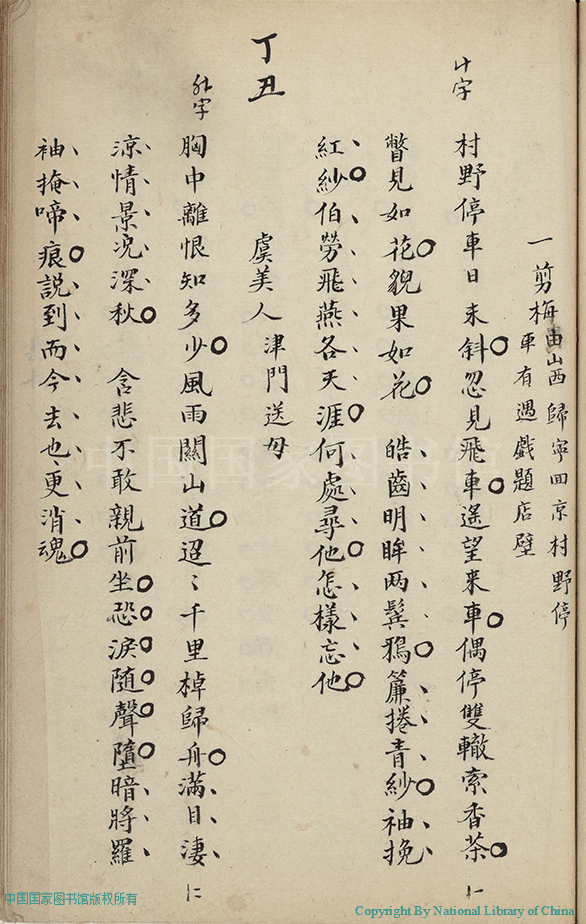 一剪梅 由山西歸寧回京村野停
車有遇戲題店壁
村野停車日未斜忽見飛車遙望来車偶停雙轍索香茶
瞥見如花貌果如花 皓齒明眸两鬓鴉簾捲青紗袖挽
紅紗伯勞飛燕各天涯何處尋他怎樣忘他
丁丑
虞美人 津門送母
胸中離恨知多少風雨關山道迢〻千里棹歸舟滿目淒
涼情景况深秋 含悲不敢親前坐恐淚随聲墮暗將羅
袖掩啼痕説到而今去也更消魂
中国国家图书馆
中国国家图书馆版权所有
Copyright By National Library of China